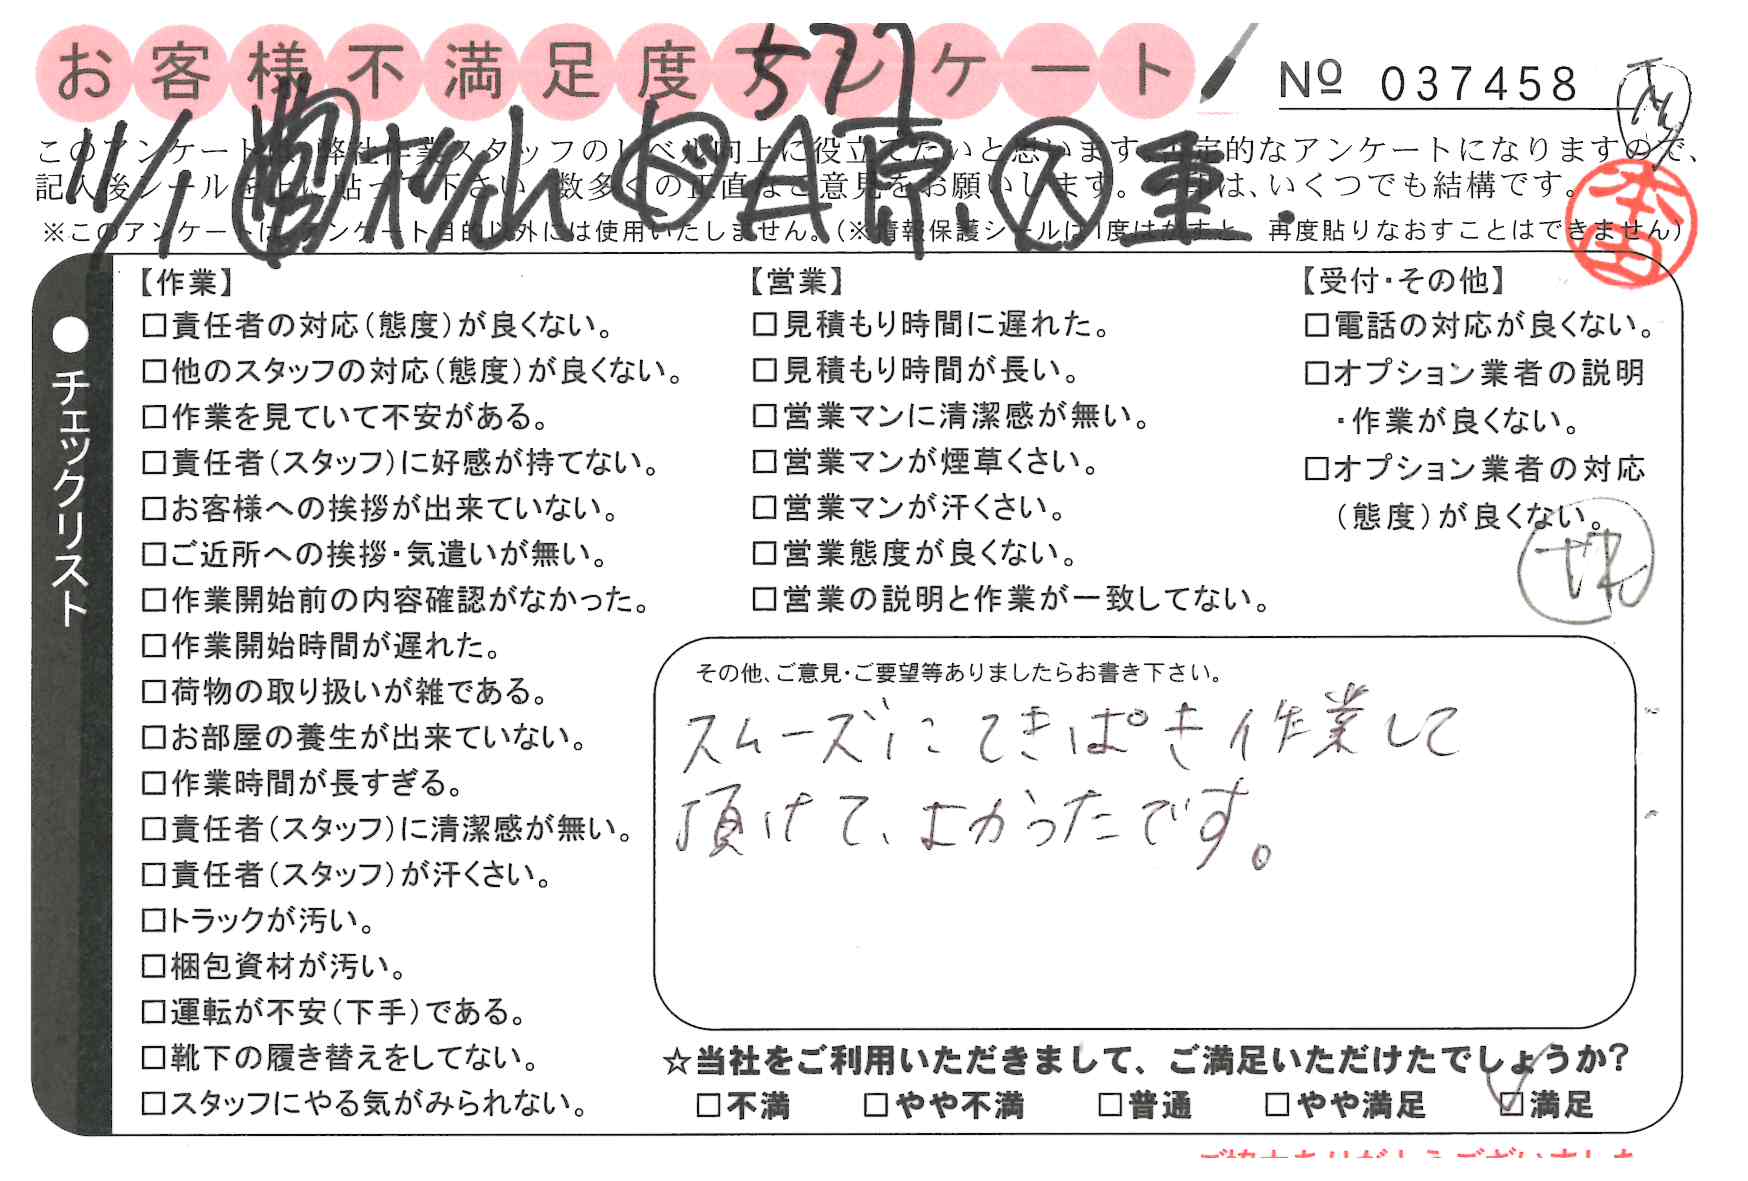 お客様不満足度アンケート
577
№ 037458
このアンケートは、弊社作業スタッフのレベル向上に役立てたいと思います。否定的なアンケートになりますので、
記入後シールを上に貼って下さい。数多くの正直なご意見をお願いします。 は、いくつでも結構です。
※このアンケートは、アンケート目的以外には使用いたしません。(※情報保護シールは1度はがすと、再度貼りなおすことはできません)
11/1 営 松山 ド 会原 入 重.
本田
チェックリスト
【作業】
□責任者の対応(態度)が良くない。
□他のスタッフの対応(態度)が良くない。
□作業を見ていて不安がある。
□責任者(スタッフ)に好感が持てない。
□お客様への挨拶が出来ていない。
□ご近所への挨拶・気遣いが無い。
□作業開始前の内容確認がなかった。
□作業開始時間が遅れた。
□荷物の取り扱いが雑である。
□お部屋の養生が出来ていない。
□作業時間が長すぎる。
□責任者(スタッフ)に清潔感が無い。
□責任者(スタッフ)が汗くさい。
□トラックが汚い。
□梱包資材が汚い。
□運転が不安(下手)である。
□靴下の履き替えをしてない。
□スタッフにやる気がみられない。
【営業】
□見積もり時間に遅れた。
□見積もり時間が長い。
□営業マンに清潔感が無い。
□営業マンが煙草くさい。
□営業マンが汗くさい。
□営業態度が良くない。
□営業の説明と作業が一致してない。
【受付・その他】
□電話の対応が良くない。
□オプション業者の説明
・作業が良くない。
□オプション業者の対応
(態度)が良くない。
その他、ご意見・ご要望等ありましたらお書き下さい。
スムーズにてきぱき作業して
頂けて、よかったです。
☆当社をご利用いただきまして、ご満足いただけたでしょうか?
□不満 □やや不満 □普通 □やや満足 ☑満足
ご協力ありがとうございました